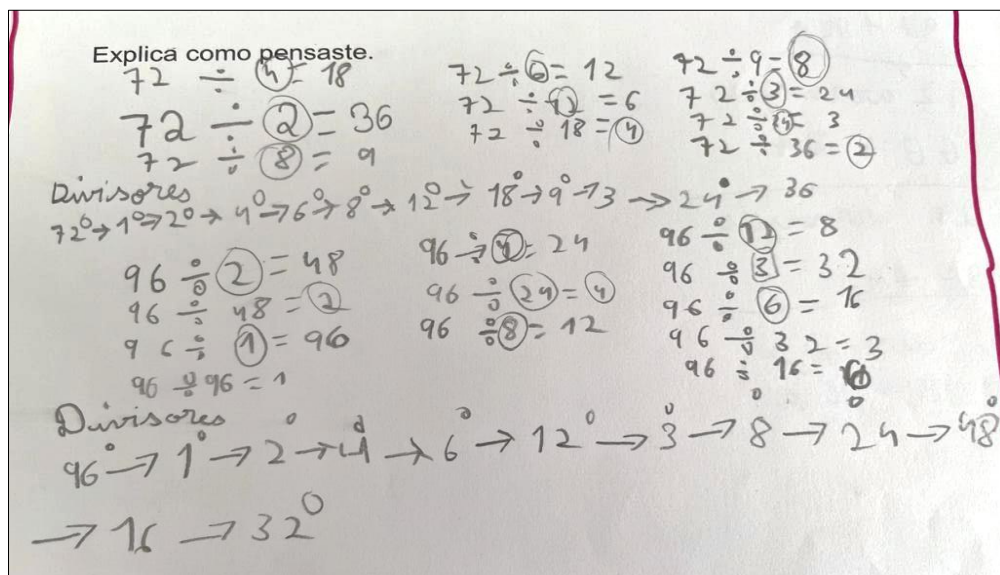 Explica como pensaste.
72 ÷ 4 = 18
72 ÷ 2 = 36
72 ÷ 8 = 9
72 ÷ 6 = 12
72 ÷ 12 = 6
72 ÷ 18 = 4
72 ÷ 9 = 8
72 ÷ 3 = 24
72 ÷ 24 = 3
72 ÷ 36 = 2
Divisores
72° → 1° → 2° → 4° → 6° → 8° → 12° → 18° → 9° → 3 → 24° → 36
96 ÷ 2 = 48
96 ÷ 48 = 2
96 ÷ 1 = 96
96 ÷ 96 = 1
96 ÷ 4 = 24
96 ÷ 24 = 4
96 ÷ 8 = 12
96 ÷ 12 = 8
96 ÷ 3 = 32
96 ÷ 6 = 16
96 ÷ 32 = 3
96 ÷ 16 = 6
Divisores
96° → 1° → 2° → 4° → 6° → 12° → 3° → 8° → 24° → 48°
→ 16 → 32°